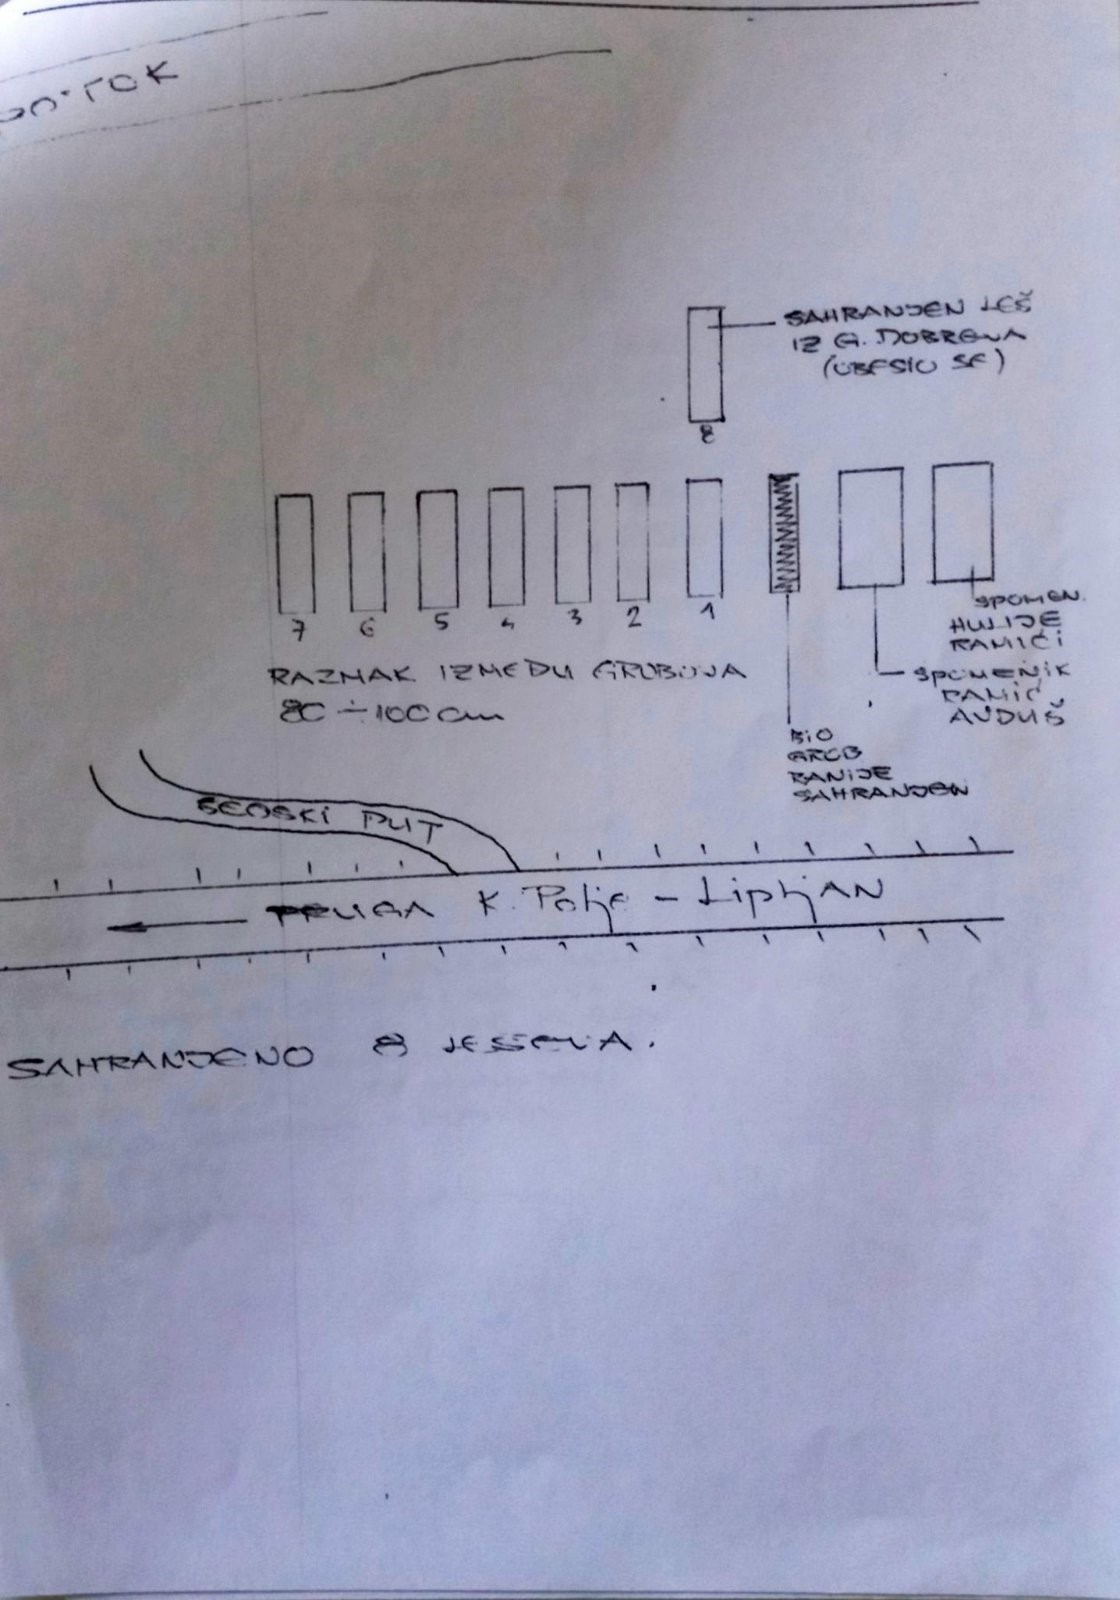 POTOK
SAHRANJEN LEŠ
IZ G. DOBREVA
(OBESIO SE)
8
7 6 5 4 3 2 1
SPOMEN.
HULIJE
RAMIĆI
RAZMAK IZMEĐU GROBOVA
80 ÷ 100 cm
SPOMENIK
RAMIĆ
AVDUŠ
BIO
GROB
RANIJE
SAHRANJEN
SEOSKI PUT
PRUGA K. Polje - LipljAN
SAHRANJENO 8 LEŠEVA.